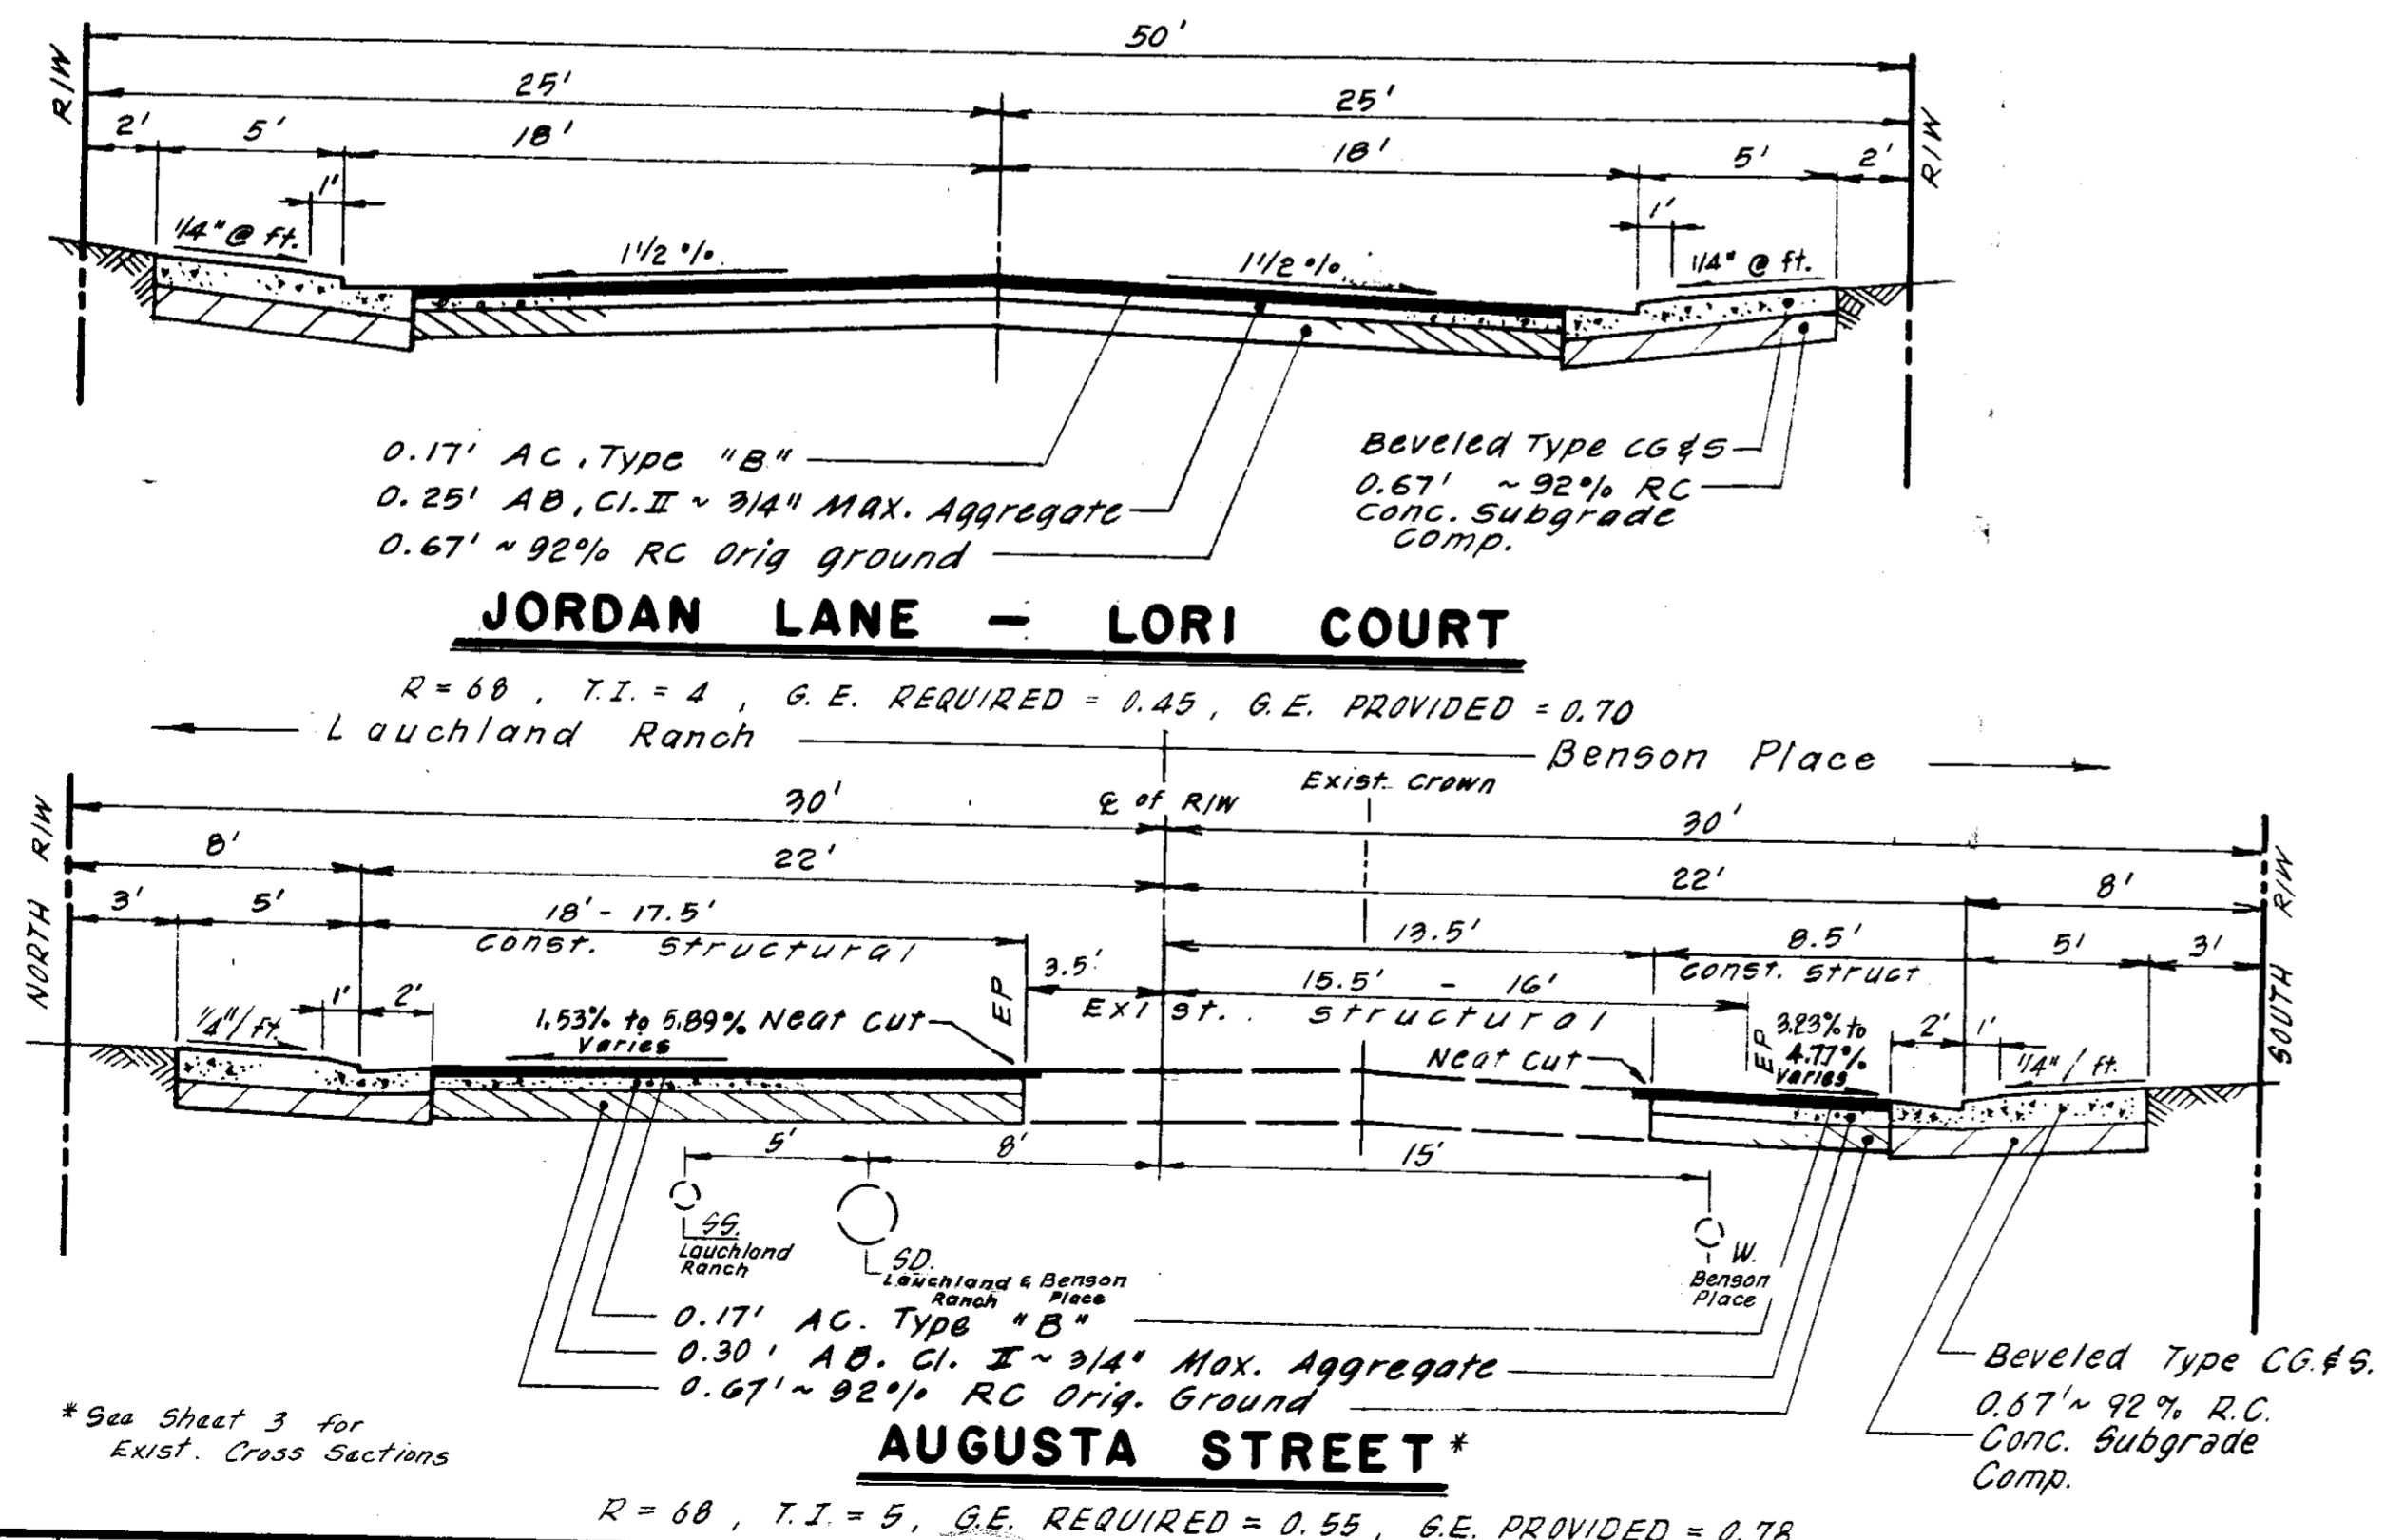 50'
R/W
25'
25'
R/W
2'
5'
18'
18'
5'
2'
1'
1'
1/4" @ ft.
1 1/2 %
1 1/2 %
1/4" @ ft.
0.17' AC, Type "B"
0.25' AB, Cl. II ~ 3/4" Max. Aggregate
0.67' ~ 92% RC Orig ground
Beveled Type CG & S
0.67' ~ 92% RC
Conc. Subgrade
Comp.
JORDAN LANE – LORI COURT
R = 68 , T.I. = 4 , G.E. REQUIRED = 0.45 , G.E. PROVIDED = 0.70
Lauchland Ranch
Benson Place
30'
℄ of R/W
Exist. Crown
30'
NORTH R/W
SOUTH R/W
8'
22'
22'
8'
3'
5'
18' - 17.5'
Const. Structural
13.5'
8.5'
Const. Struct
5'
3'
EP
3.5'
15.5' - 16'
Exist. Structural
1/4"/ft.
1'
2'
1.53% to 5.89%
varies
Neat Cut
Neat Cut
EP
3.83% to
4.77%
varies
2'
1'
1/4" / ft.
5'
8'
15'
SS.
Lauchland
Ranch
SD.
Lauchland & Benson
Ranch Place
W.
Benson
Place
0.17' AC. Type "B"
0.30' AB. Cl. II ~ 3/4" Max. Aggregate
0.67' ~ 92% RC Orig. Ground
Beveled Type CG. & S.
0.67' ~ 92 % R.C.
Conc. Subgrade
Comp.
* See Sheet 3 for
Exist. Cross Sections
AUGUSTA STREET *
R = 68 , T.I. = 5 , G.E. REQUIRED = 0.55 , G.E. PROVIDED = 0.78